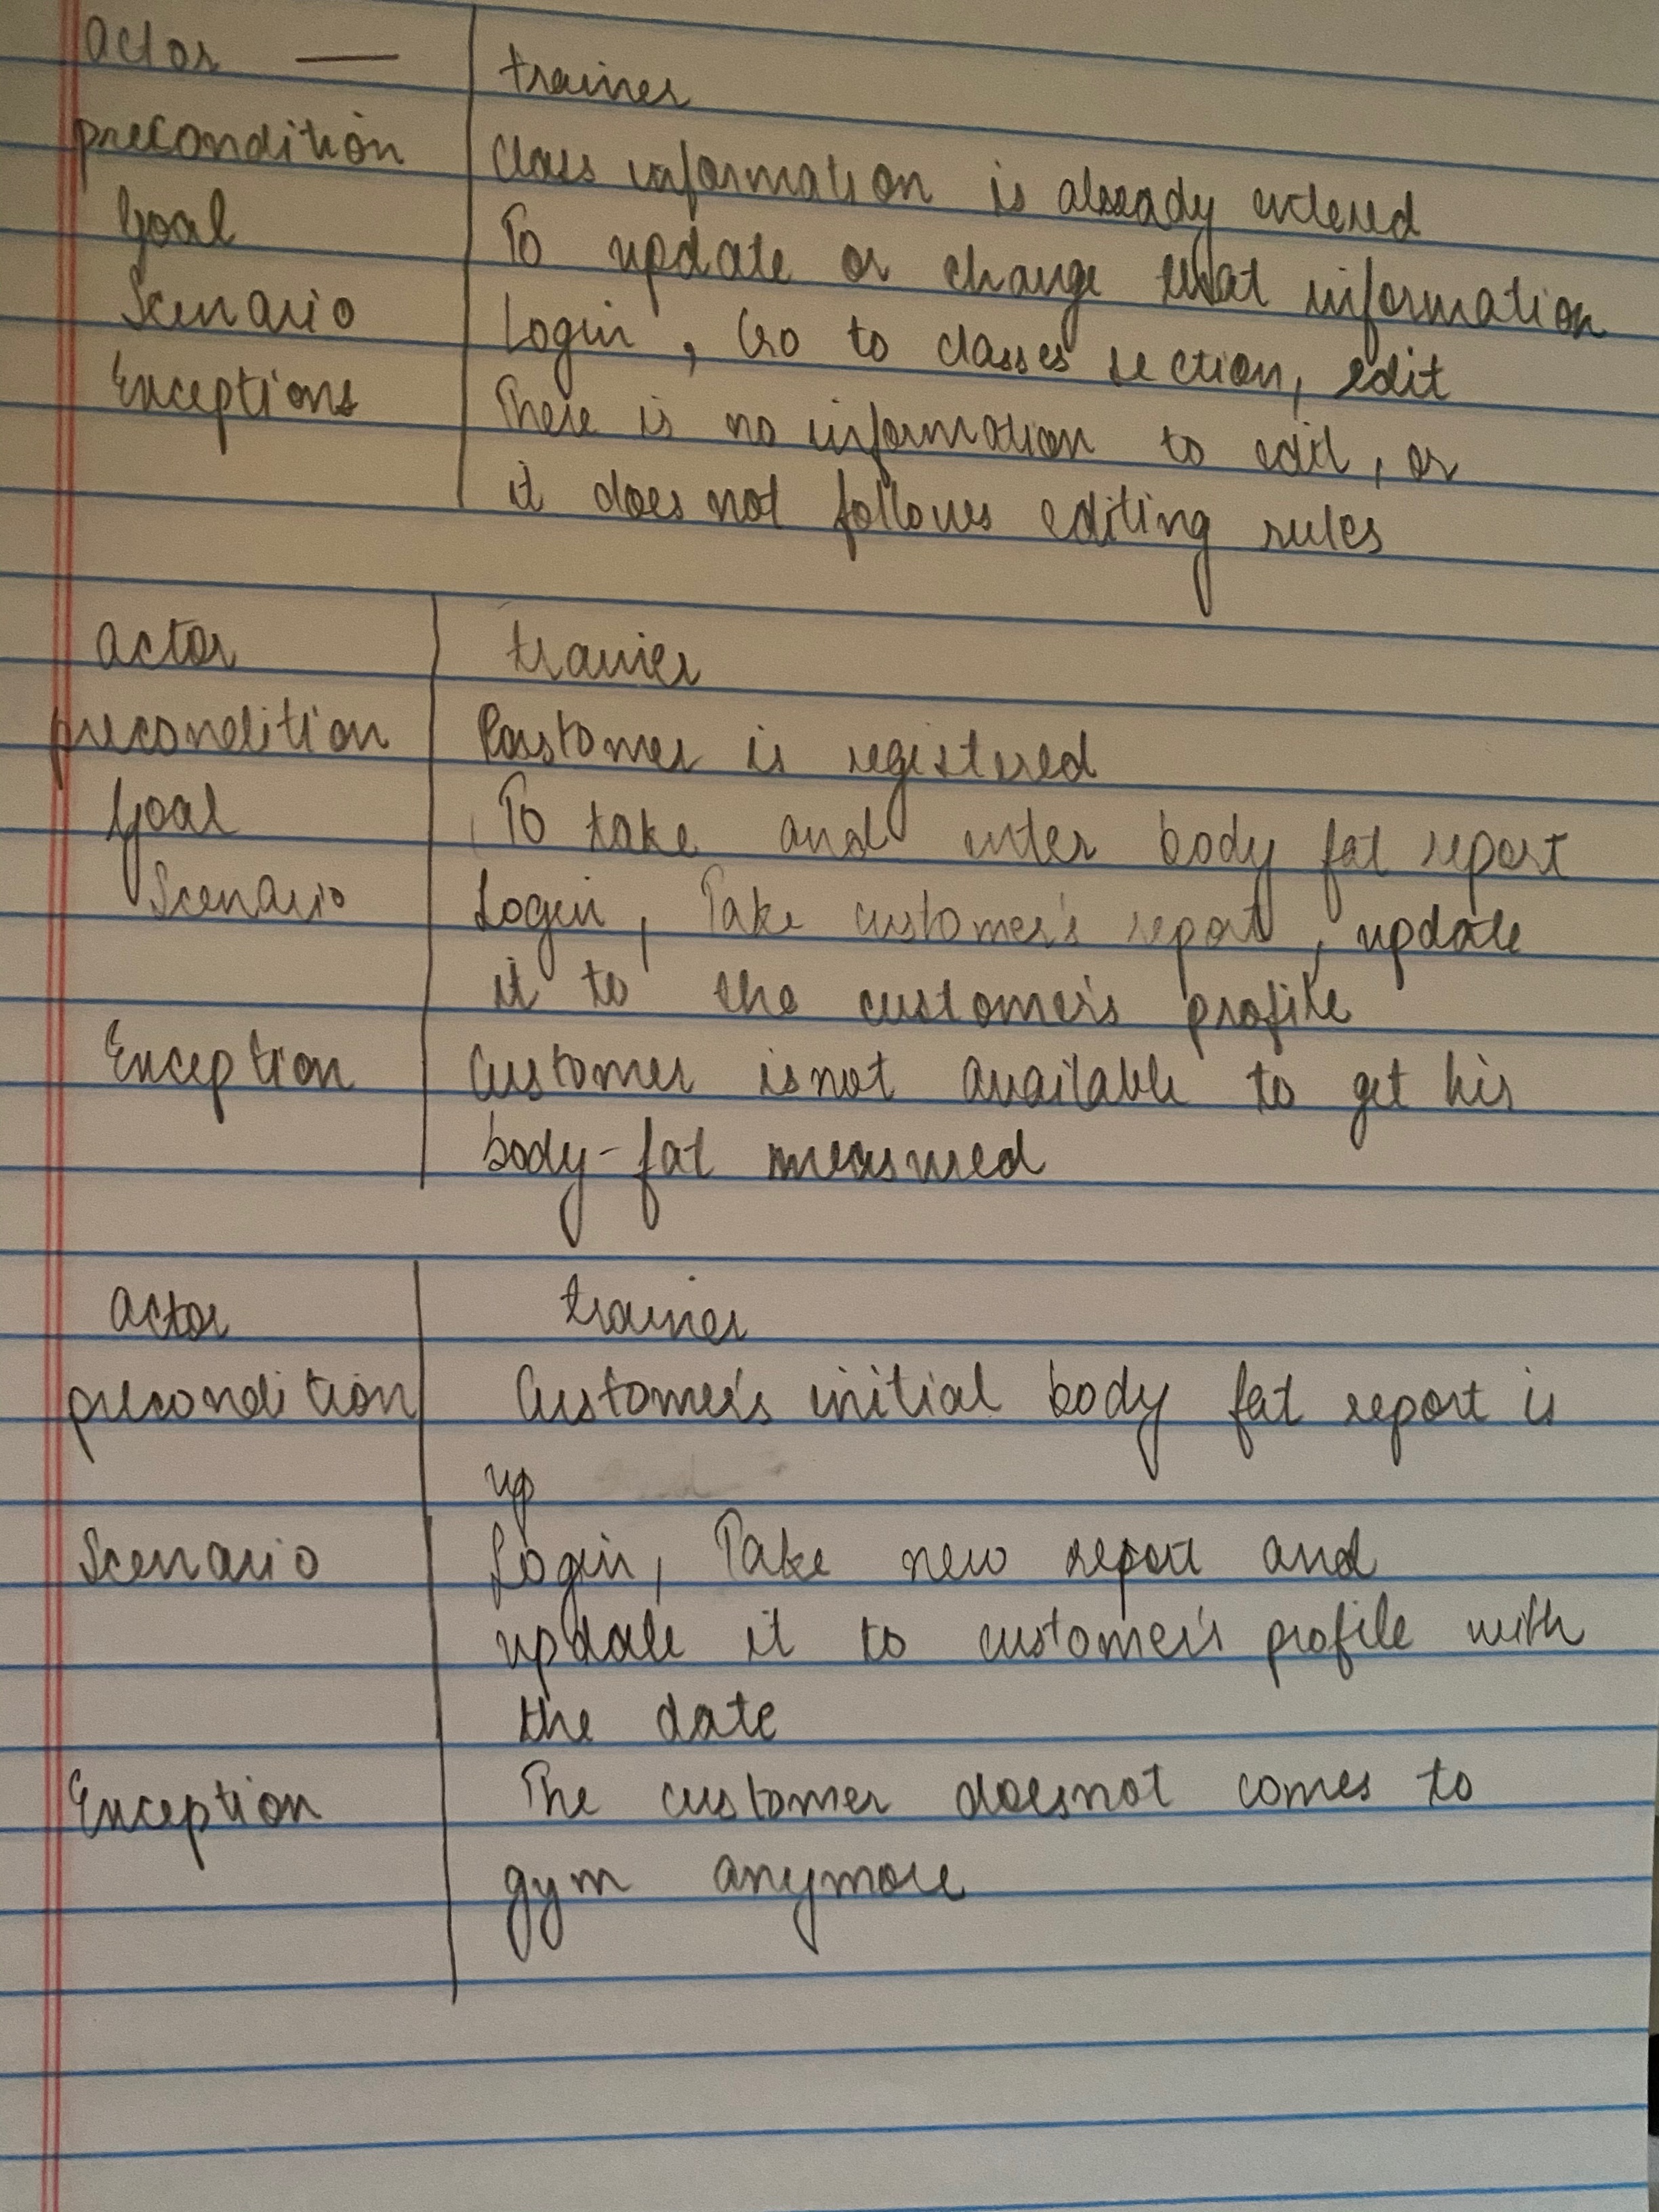 actor — trainer
precondition class information is already entered
Goal To update or change that information
Scenario Login, Go to classes section, edit
Exceptions There is no information to edit, or
it does not follows editing rules
actor trainer
precondition Customer is registered
Goal To take and enter body fat report
Scenario Login, Take customer's report, update
it to the customer's profile
Exception Customer is not available to get his
body-fat measured
actor trainer
precondition Customer's initial body fat report is
up
Scenario Login, Take new report and
update it to customer's profile with
the date
Exception The customer doesnot comes to
gym anymore